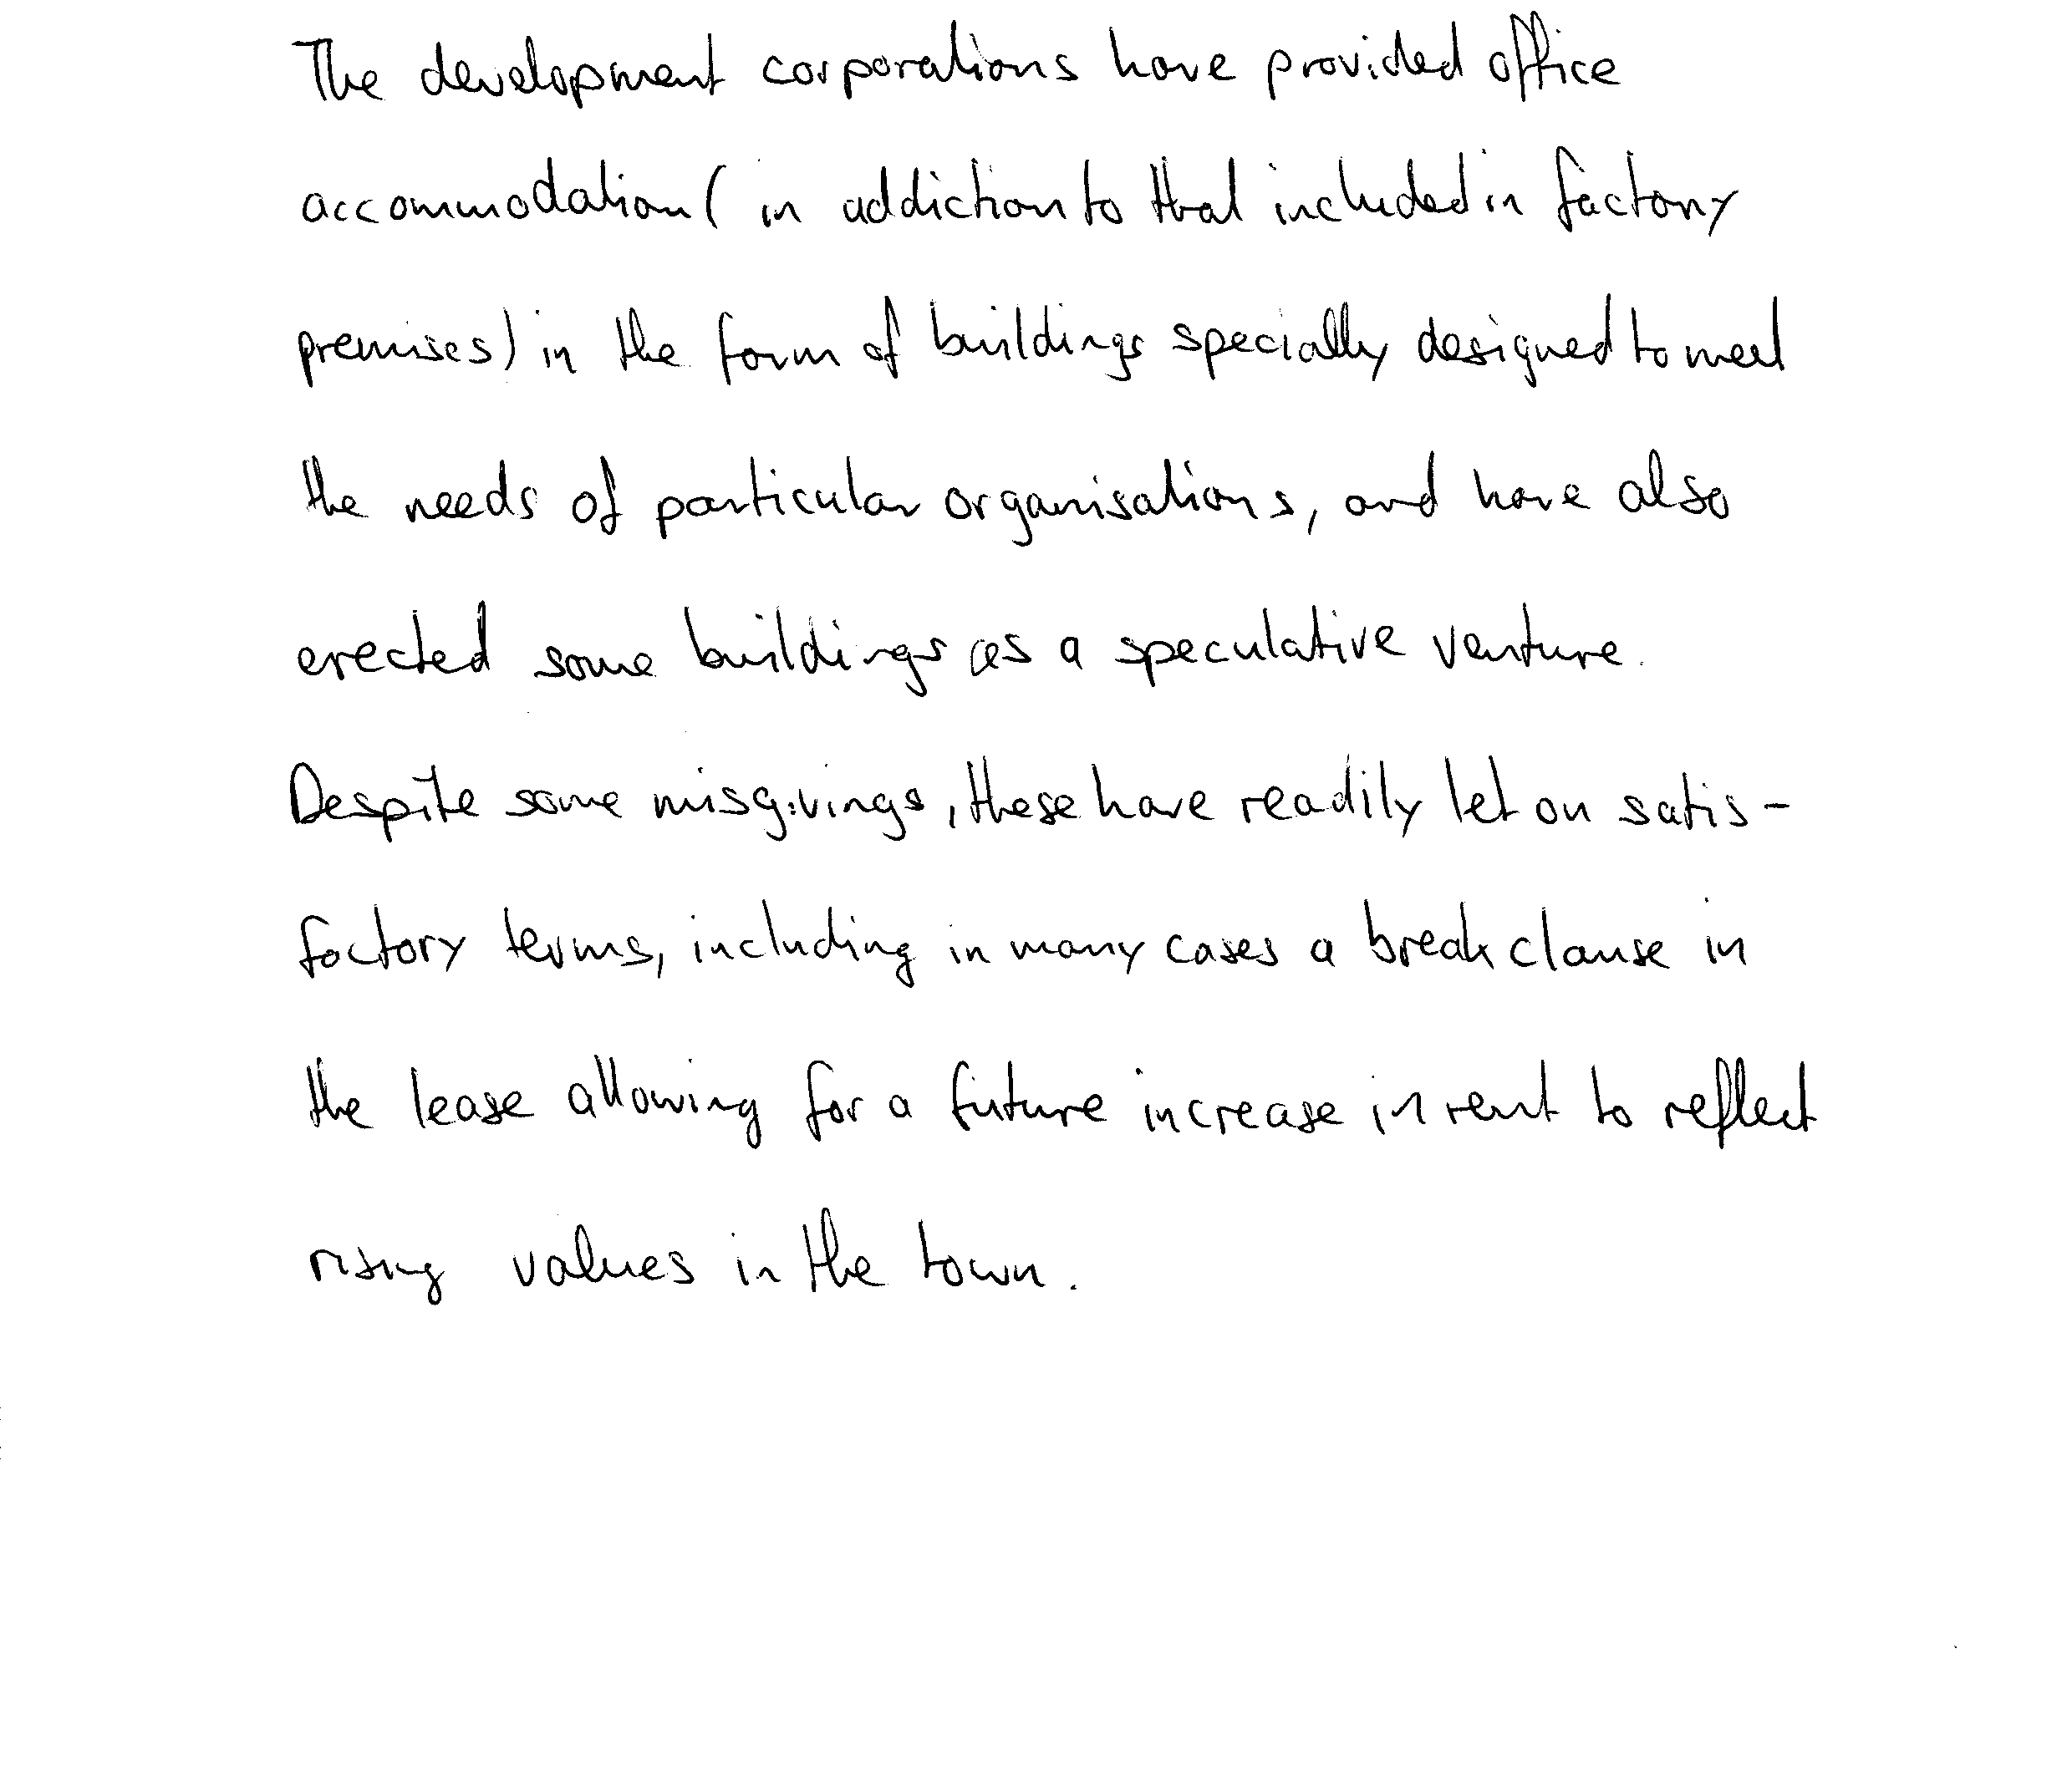 The development corporations have provided office
accommodation ( in addiction to that included in factory
premises) in the form of buildings specially designed to meet
the needs of particular organisations, and have also
erected some buildings as a speculative venture.
Despite some misgivings, these have readily let on satis-
factory terms, including in many cases a break clause in
the lease allowing for a future increase in rent to reflect
rising values in the town.